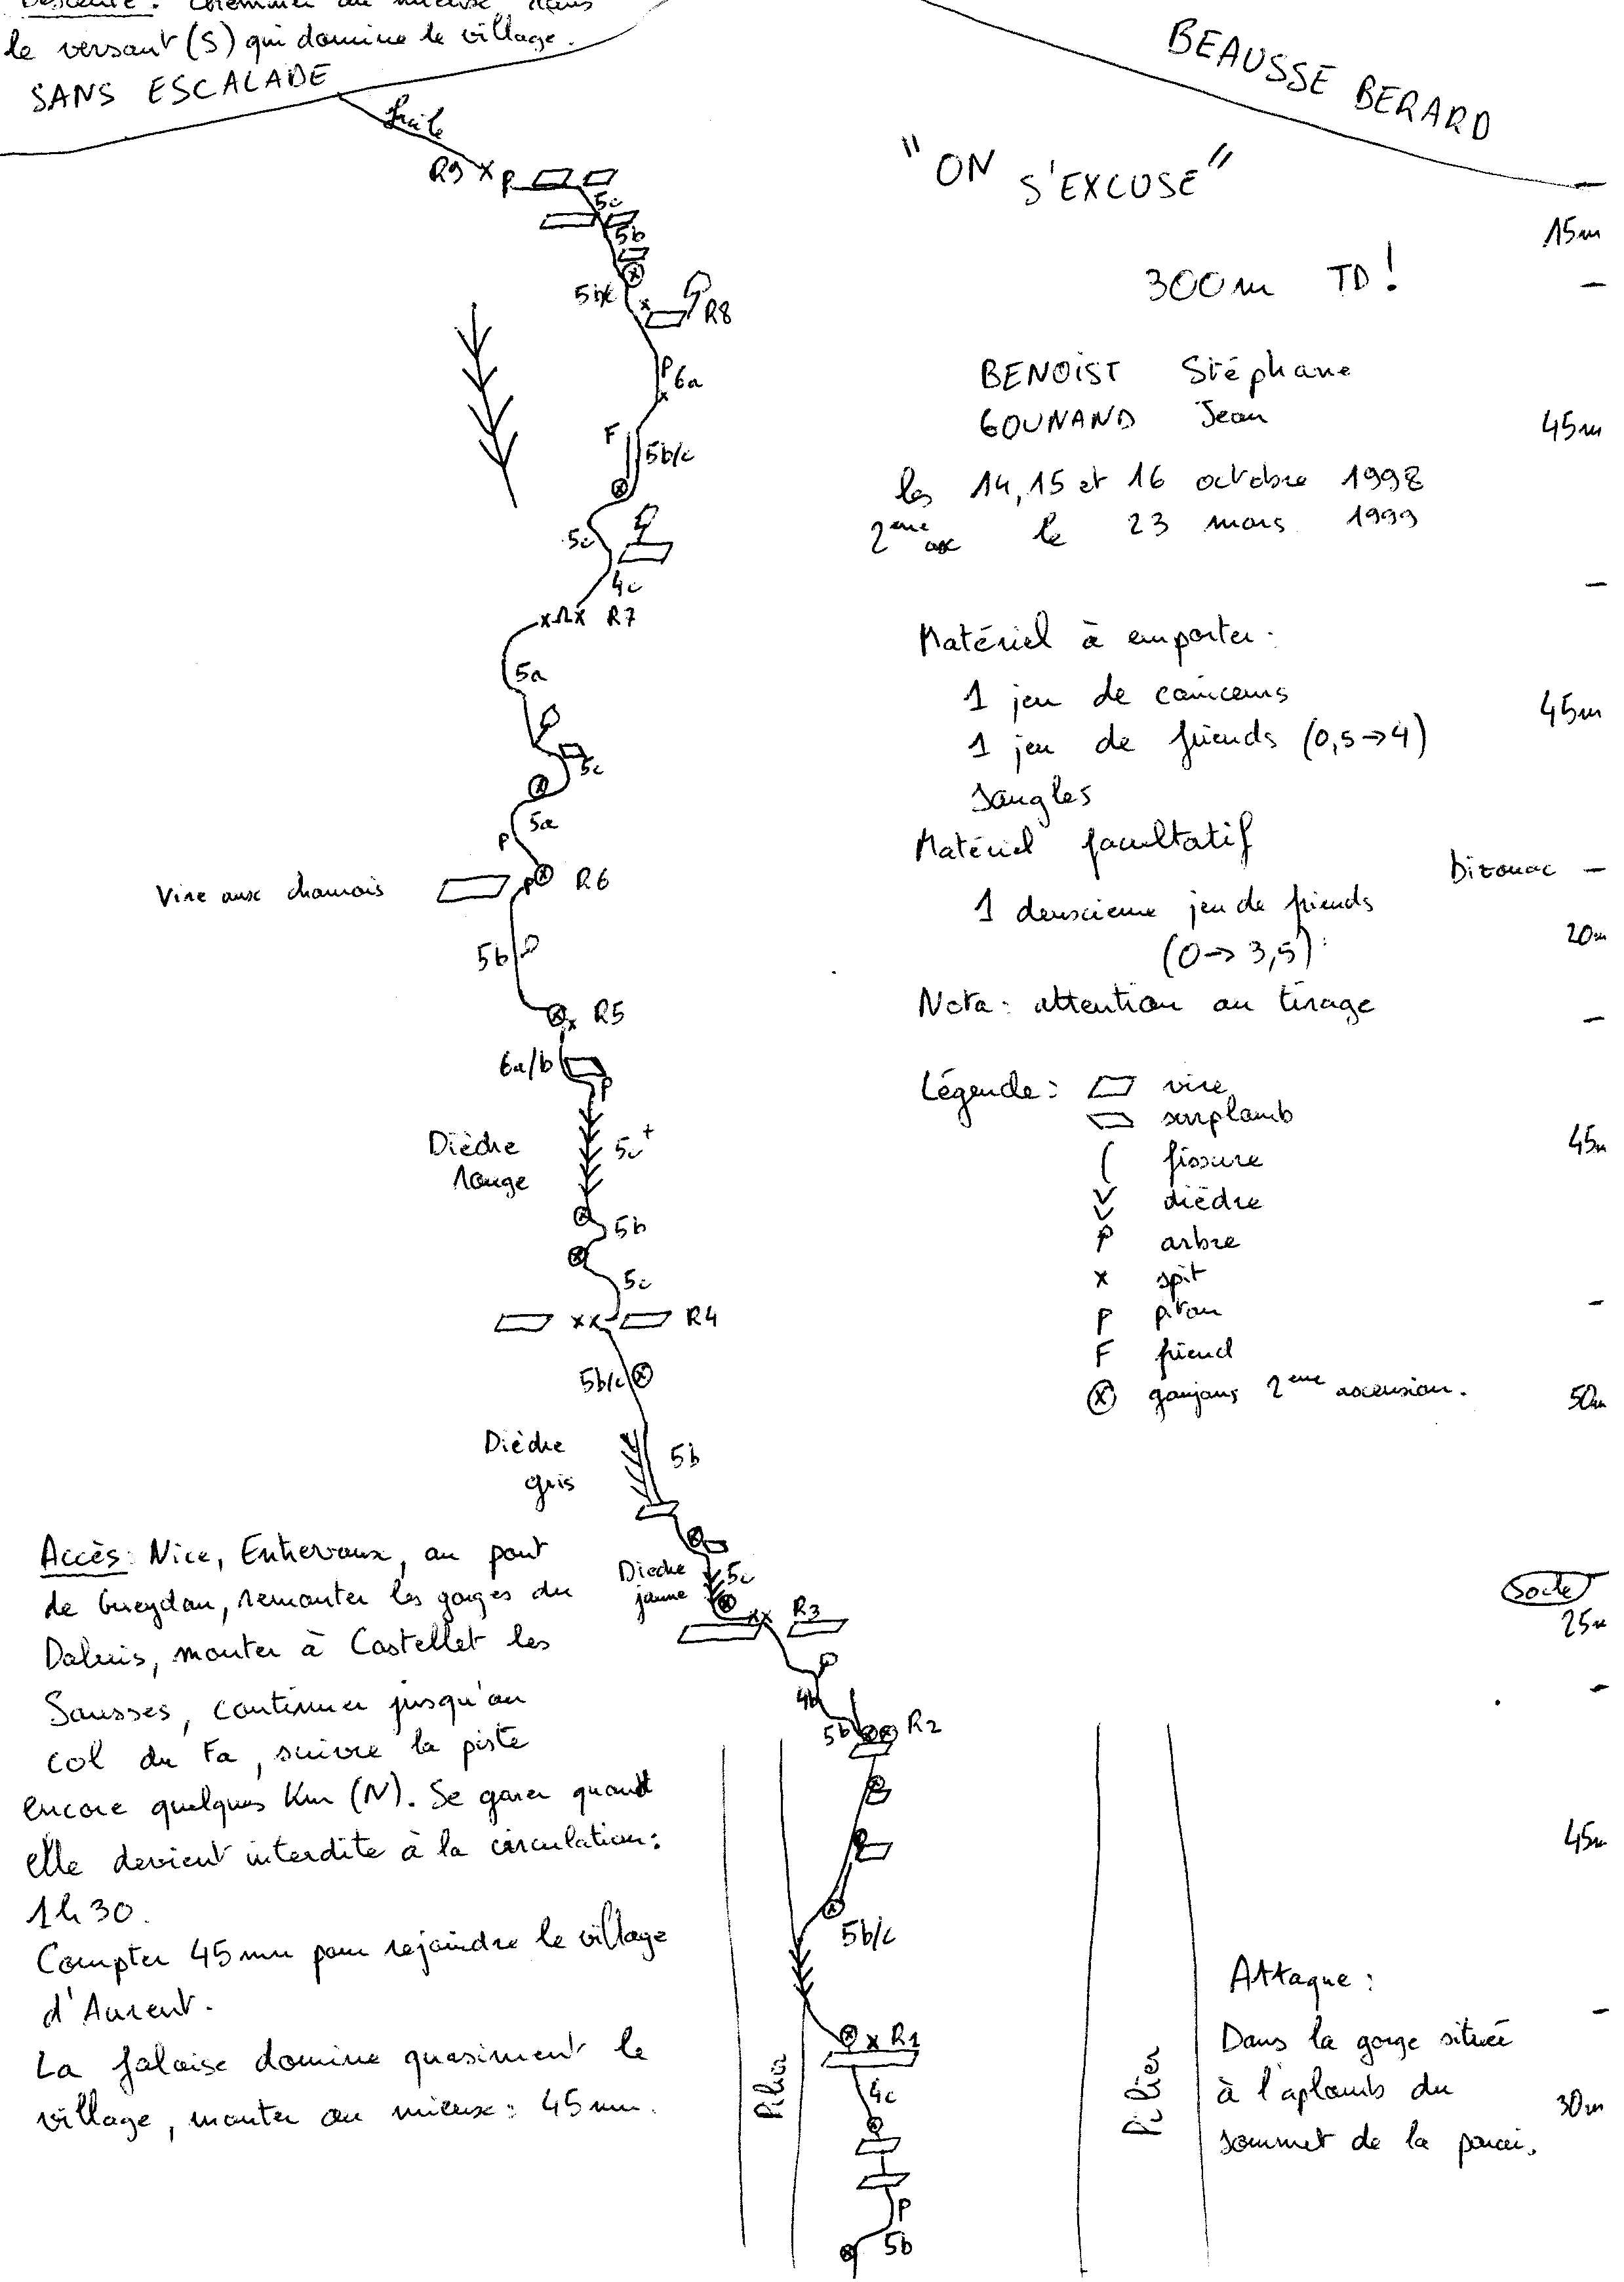 Descente : cheminer au mieux dans
le versant (S) qui domine le village.
SANS ESCALADE
BEAUSSE BERARD
"ON S'EXCUSE"
300m TD!
BENOIST Stéphane
GOUNAND Jean
les 14, 15 et 16 octobre 1998
2ème asc le 23 mars 1999
Matériel à emporter :
1 jeu de coinceurs
1 jeu de friends (0,5→4)
Sangles
Matériel facultatif
1 deuxieme jeu de friends
(0→3,5)
Nota : attention au tirage
Légende : vire
surplomb
fissure
dièdre
P arbre
x spit
P piton
F friend
goujons 2ème ascension.
facile
R9 x P
5c
5b
5b/c
x R8
P 6a
x
F 5b/c
5c
4c
x x R7
5a
5c
5a
P
Vire aux chamois P R6
5b
x R5
6a/b
P
Dièdre
rouge
5c+
5b
5c
xx R4
5b/c
Dièdre
gris
5b
Diedre
jaune
5c
xx R3
4b
5b R2
5b/c
x R1
4c
P
5b
Pilier
Pilier
15m
45m
45m
Bivouac
20m
45m
50m
Socle
25m
45m
30m
Accès : Nice, Entrevaux, au pont
de Gueydan, remonter les gorges du
Daluis, monter à Castellet les
Sausses, continuer jusqu'au
col du Fa, suivre la piste
encore quelques Km (N). Se garer quand
elle devient interdite à la circulation :
1h30.
Compter 45mn pour rejoindre le village
d'Aurent.
La falaise domine quasiment le
village, monter au mieux : 45mn.
Attaque :
Dans la gorge située
à l'aplomb du
sommet de la paroi.